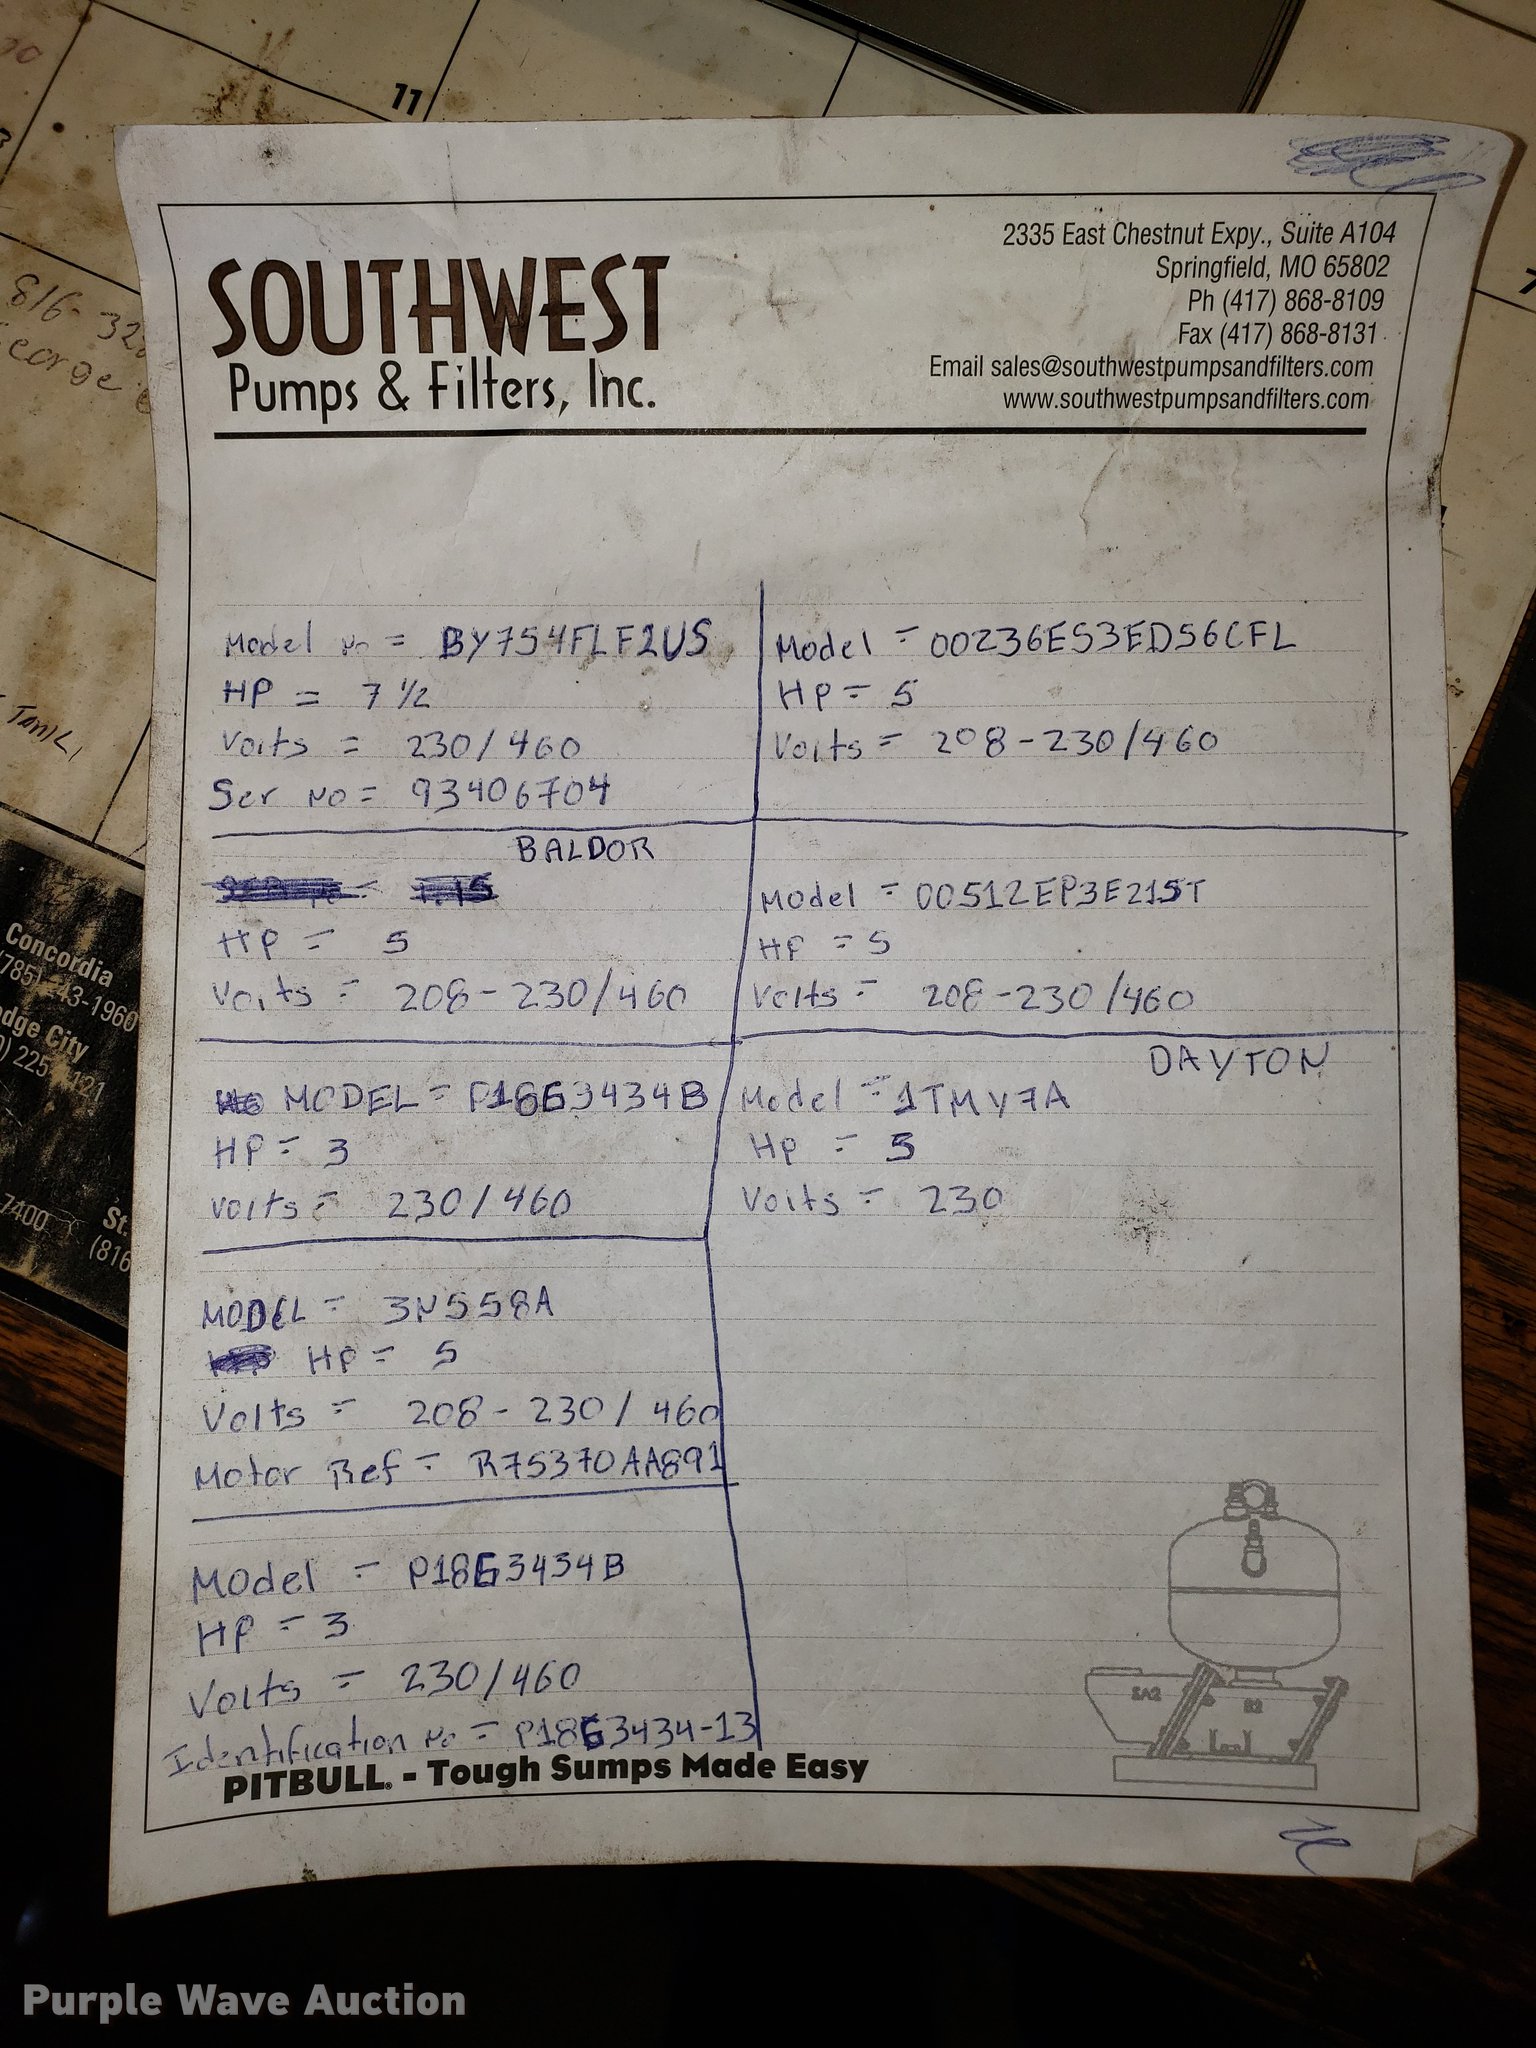 11
816-32
Concordia
(785) 243-1960
dge City
) 225-1121
7400
St.
(816
Tank
2335 East Chestnut Expy., Suite A104
Springfield, MO 65802
Ph (417) 868-8109
Fax (417) 868-8131
Email sales@southwestpumpsandfilters.com
www.southwestpumpsandfilters.com
SOUTHWEST
Pumps & Filters, Inc.
Model no = BY754FLF2US
HP = 7 1/2
Volts = 230/460
Ser no = 93406704
Model = 00236ES3ED56CFL
HP = 5
Volts = 208-230/460
BALDOR
HP = 5
Volts = 208-230/460
Model = 00512EP3E215T
HP = 5
Volts = 208-230/460
MODEL = P18G3434B
HP = 3
Volts = 230/460
DAYTON
Model = 1TMY7A
Hp = 5
Volts = 230
MODEL = 3N558A
HP = 5
Volts = 208-230/460
Motor Ref = R75370AA891
Model = P18G3434B
HP = 3
Volts = 230/460
Identification no = P18G3434-13
SA2
B2
PITBULL® - Tough Sumps Made Easy
Purple Wave Auction